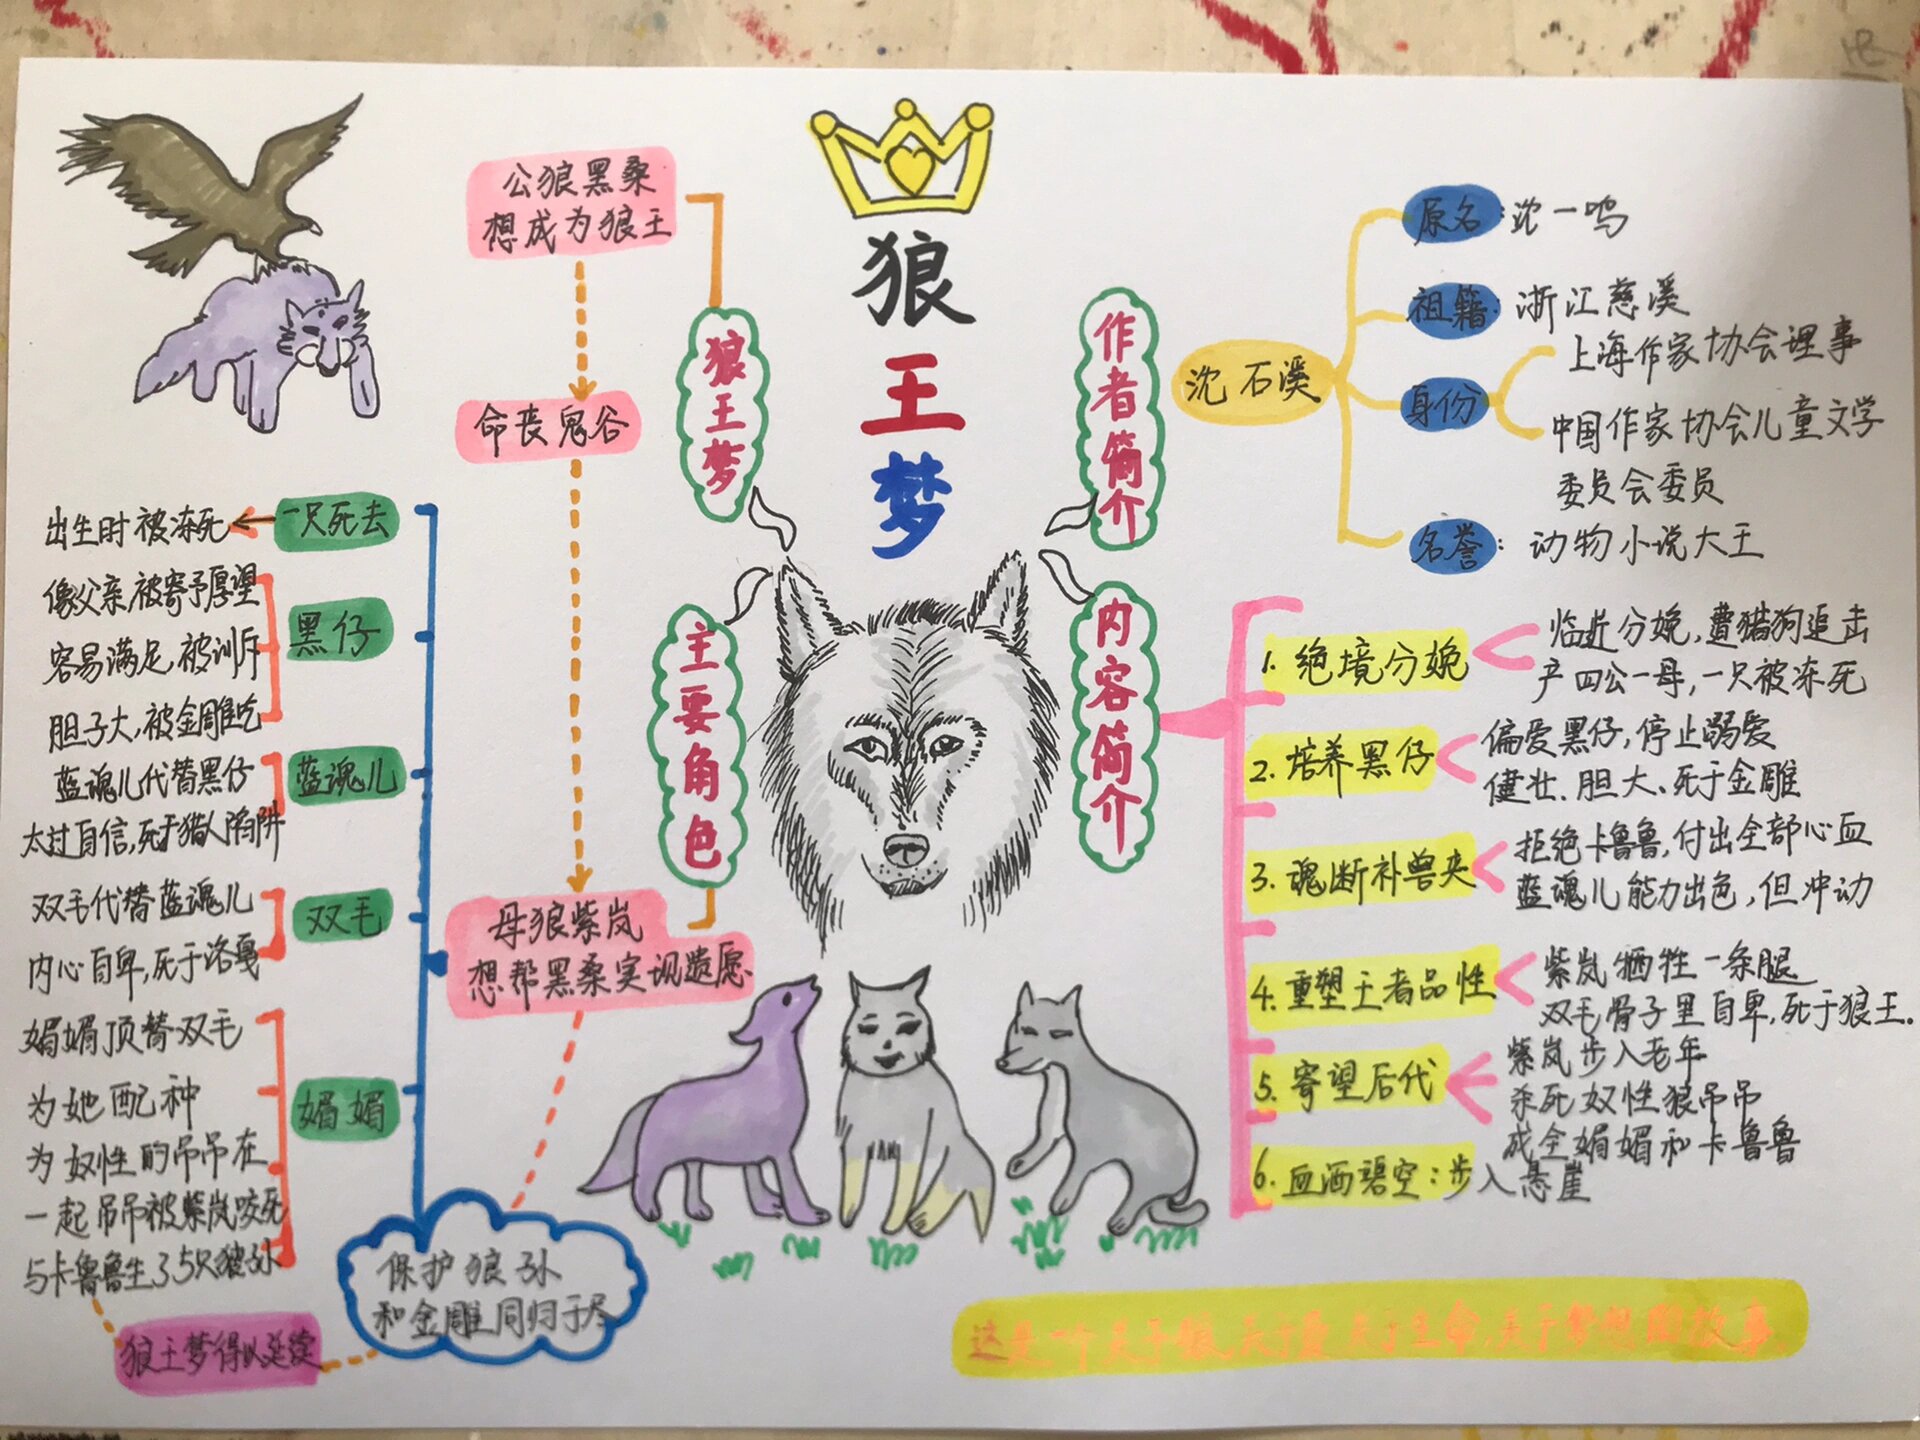 狼
王
梦
狼王梦
公狼黑桑
想成为狼王
命丧鬼谷
母狼紫岚
想帮黑桑实现遗愿
主要角色
一只死去
出生时被冻死
黑仔
像父亲,被寄予厚望
容易满足,被训斥
胆子大,被金雕吃
蓝魂儿
蓝魂儿代替黑仔
太过自信,死于猎人陷阱
双毛
双毛代替蓝魂儿
内心自卑,死于洛戛
媚媚
媚媚顶替双毛
为她配种
为奴性的吊吊在
一起吊吊被紫岚咬死
与卡鲁鲁生了5只狼孙
保护狼孙
和金雕同归于尽
狼王梦得以延续
作者简介
沈石溪
原名:沈一鸣
祖籍:浙江慈溪
身份
上海作家协会理事
中国作家协会儿童文学
委员会委员
名誉:动物小说大王
内容简介
1.绝境分娩
临近分娩,遭猎狗追击
产四公一母,一只被冻死
2.培养黑仔
偏爱黑仔,停止溺爱
健壮、胆大、死于金雕
3.魂断补兽夹
拒绝卡鲁鲁,付出全部心血
蓝魂儿能力出色,但冲动
4.重塑王者品性
紫岚牺牲一条腿
双毛骨子里自卑,死于狼王.
5.寄望后代
紫岚步入老年
杀死奴性狼吊吊
成全媚媚和卡鲁鲁
6.血洒碧空:步入悬崖
这是一个关于狼,关于爱,关于生命,关于梦想的故事.